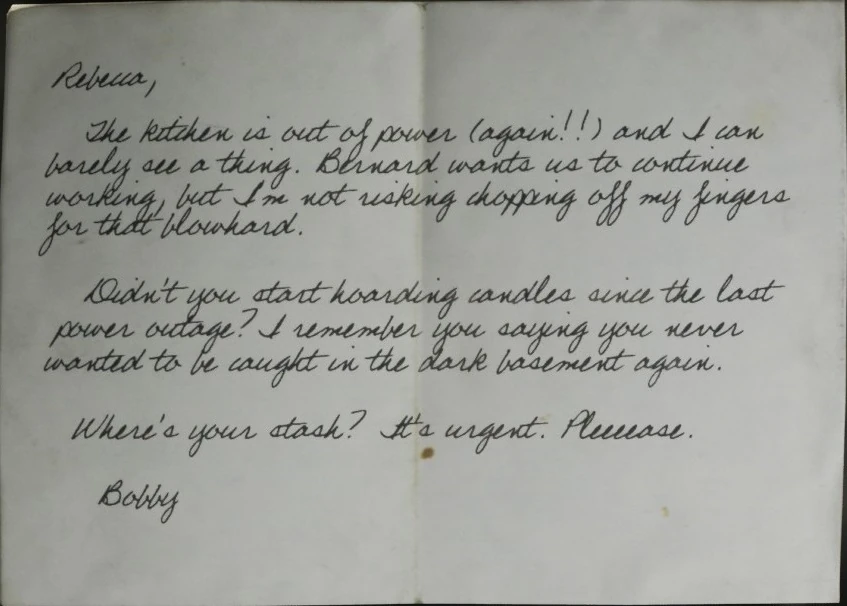 Rebecca,
The kitchen is out of power (again!!) and I can
barely see a thing. Bernard wants us to continue
working, but I'm not risking chopping off my fingers
for that blowhard.
Didn't you start hoarding candles since the last
power outage? I remember you saying you never
wanted to be caught in the dark basement again.
Where's your stash? It's urgent. Pleeeease.
Bobby